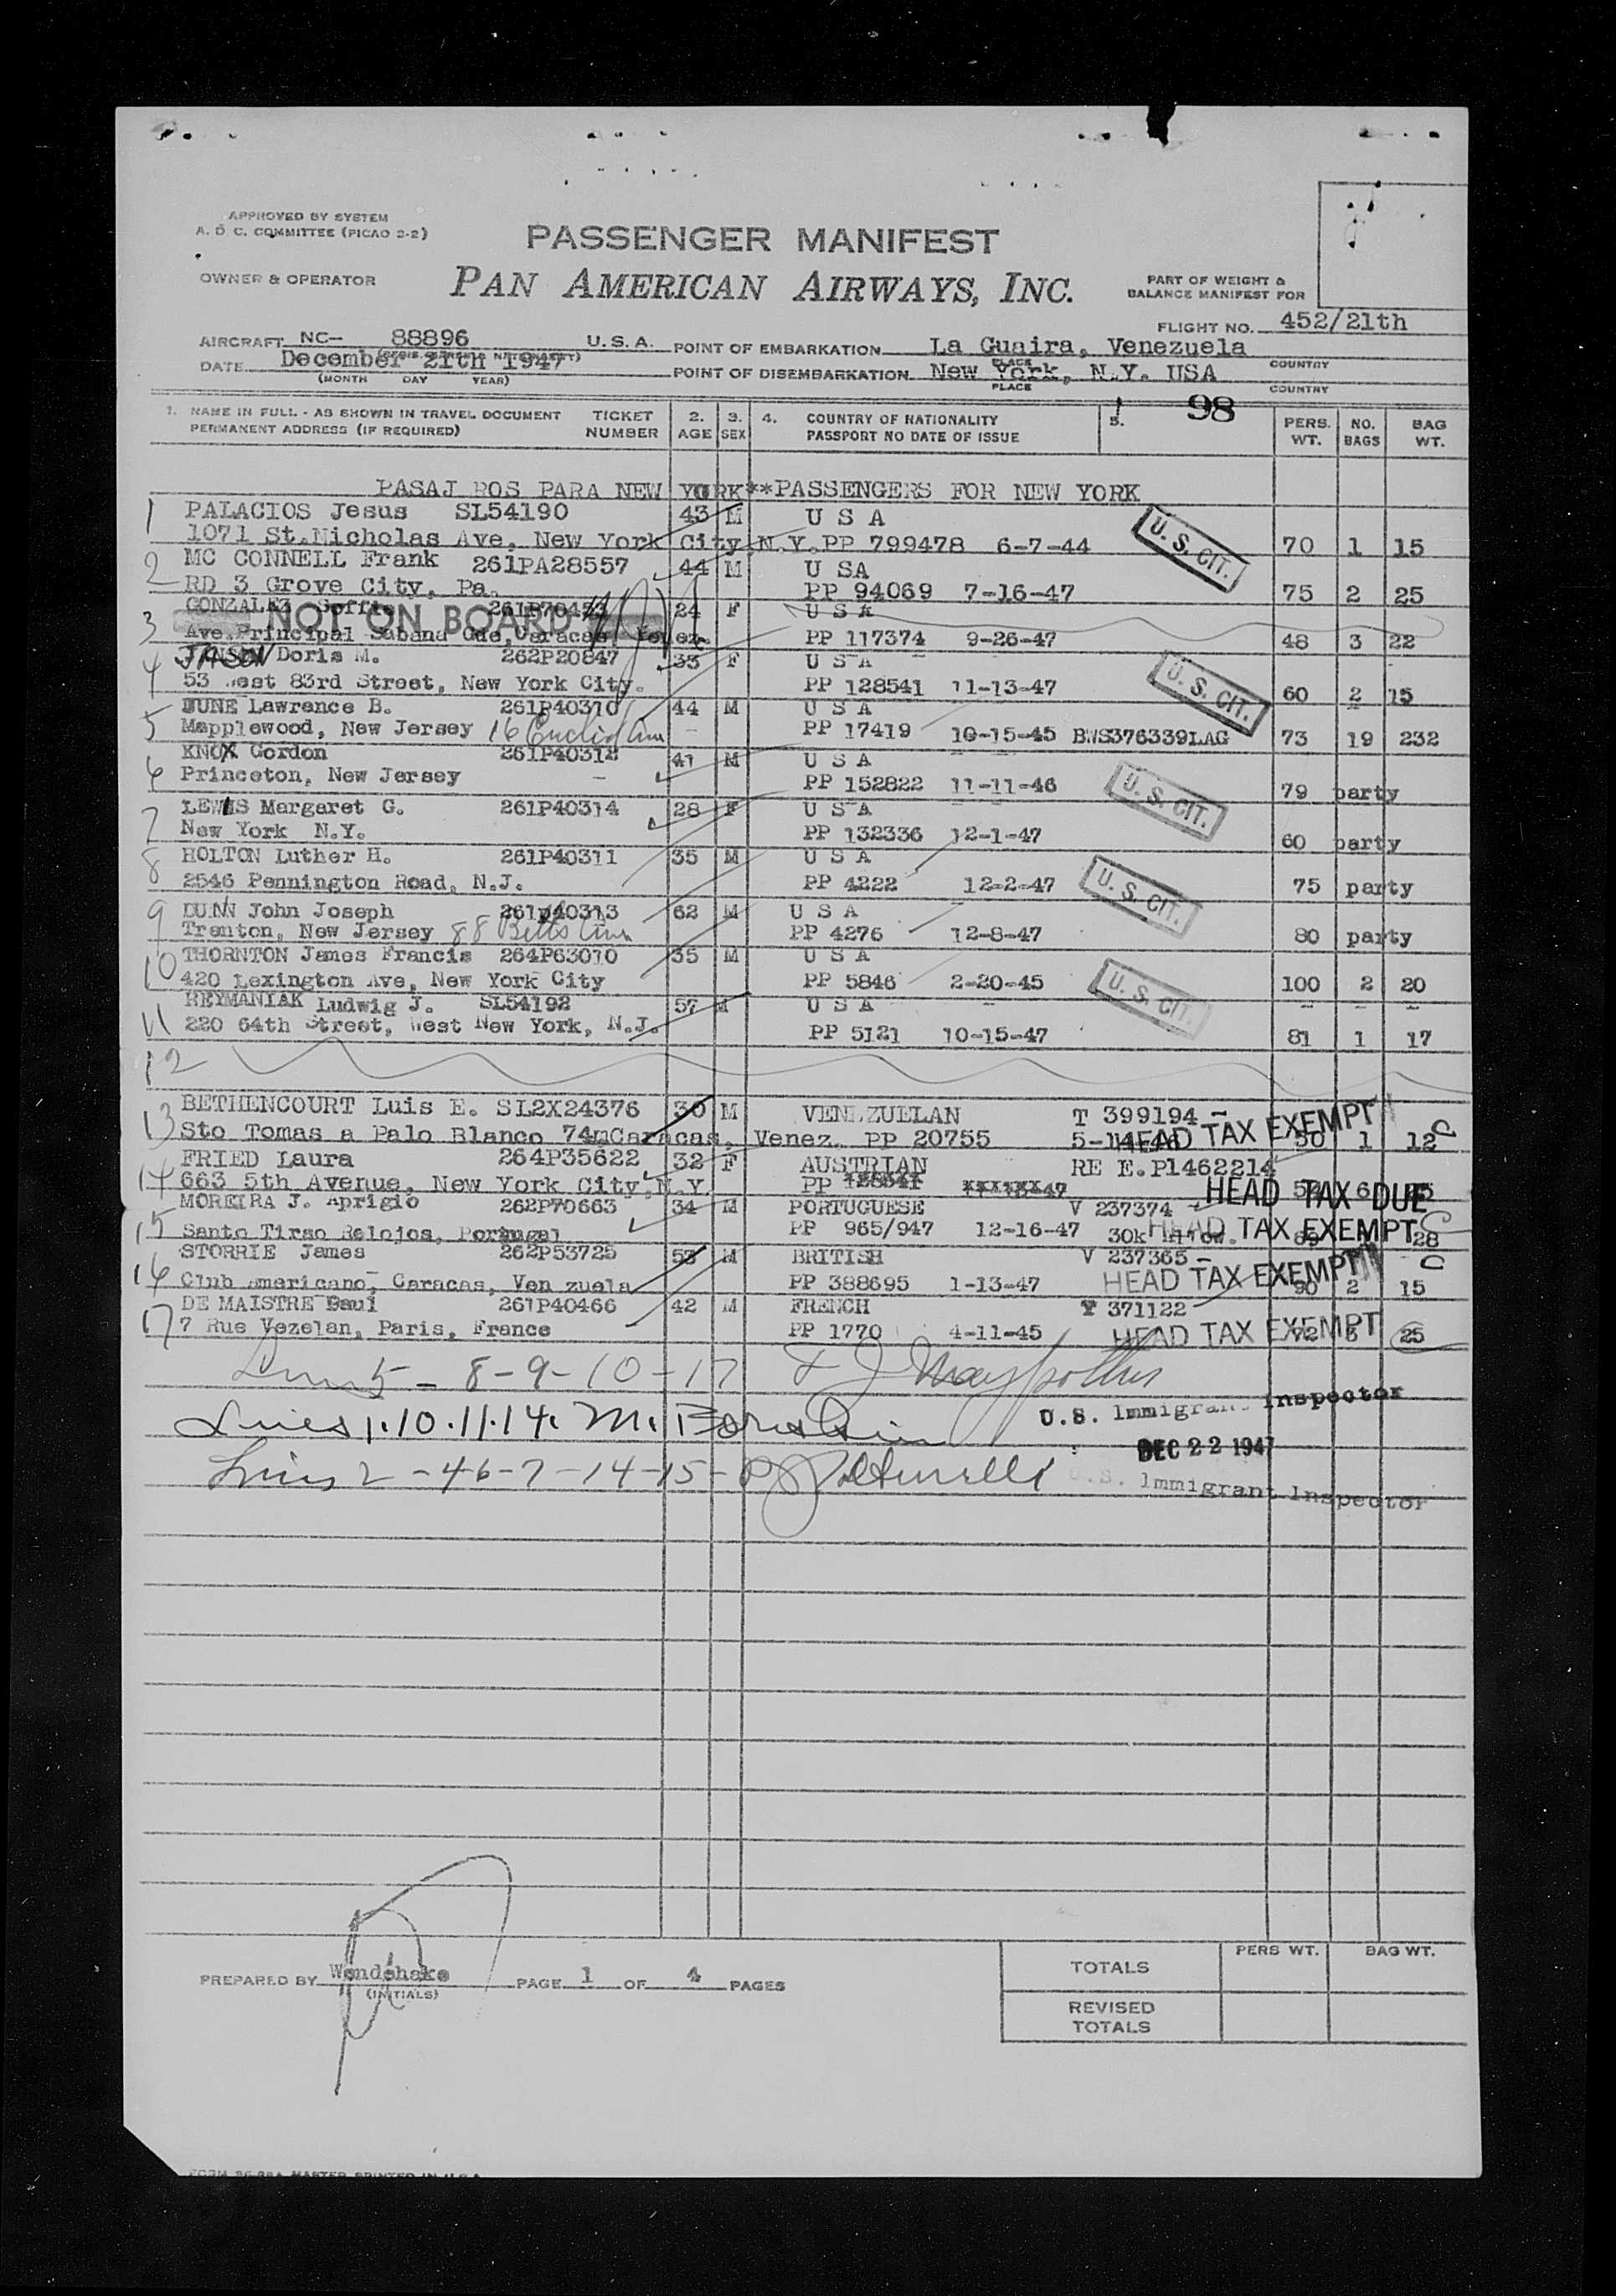 APPROVED BY SYSTEM
A. D. C. COMMITTEE (PICAO 2-2)
PASSENGER MANIFEST
OWNER & OPERATOR
PAN AMERICAN AIRWAYS, INC.
PART OF WEIGHT &
BALANCE MANIFEST FOR
FLIGHT NO. 452/21th
AIRCRAFT NC- 88896 U.S.A. POINT OF EMBARKATION La Guaira, Venezuela
PLACE COUNTRY
DATE December 21th 1947 POINT OF DISEMBARKATION New York, N.Y. USA
(MONTH DAY YEAR) PLACE COUNTRY
98
1. NAME IN FULL - AS SHOWN IN TRAVEL DOCUMENT TICKET 2. 3. 4. COUNTRY OF NATIONALITY 5. PERS. NO. BAG
PERMANENT ADDRESS (IF REQUIRED) NUMBER AGE SEX PASSPORT NO DATE OF ISSUE WT. BAGS WT.
PASAJ ROS PARA NEW YORK**PASSENGERS FOR NEW YORK
1 PALACIOS Jesus SL54190 43 M U S A
1071 St.Nicholas Ave, New York City,N.Y.PP 799478 6-7-44 U. S. CIT. 70 1 15
2 MC CONNELL Frank 261PA28557 44 M U SA
RD 3 Grove City, Pa. PP 94069 7-16-47 75 2 25
3 GONZALEZ Soffie 24 F U S A
NOT ON BOARD
Ave.Principal Sabana Gde,Caracas, Venez. PP 117374 9-26-47 48 3 22
4 JASON Doris M. 262P20847 33 F U S A
53 West 83rd Street, New York City. PP 128541 11-13-47 U. S. CIT. 60 2 15
5 DUNE Lawrence B. 261P40310 44 M U S A
Mapplewood, New Jersey 16 Euclid Ave PP 17419 10-15-45 BWS376339LAG 73 19 232
6 KNOX Gordon 261P40312 41 M U S A
Princeton, New Jersey PP 152822 11-11-46 U. S. CIT. 79 party
7 LEWIS Margaret G. 261P40314 28 F U S A
New York N.Y. PP 132336 12-1-47 60 party
8 HOLTON Luther H. 261P40311 35 M U S A
2546 Pennington Road, N.J. PP 4222 12-2-47 U. S. CIT. 75 party
9 DUNN John Joseph 261p40313 62 M U S A
Trenton, New Jersey 88 Betts Ave PP 4276 12-8-47 80 party
10 THORNTON James Francis 264P63070 35 M U S A
420 Lexington Ave, New York City PP 5846 2-20-45 U. S. CIT. 100 2 20
11 REYMANIAK Ludwig J. SL54192 57 M U S A
220 64th Street, West New York, N.J. PP 5121 10-15-47 81 1 17
12
13 BETHENCOURT Luis E. SL2X24376 30 M VENEZUELLAN T 399194
Sto Tomas a Palo Blanco 74mCaracas, Venez. PP 20755 HEAD TAX EXEMPT 50 1 12
14 FRIED Laura 264P35622 32 F AUSTRIAN RE E.P1462214
663 5th Avenue, New York City,N.Y. PP HEAD TAX DUE 52 6
15 MOREIRA J. Aprigio 262P70663 34 M PORTUGUESE V 237374
Santo Tirso Relojos, Portugal PP 965/947 12-16-47 HEAD TAX EXEMPT 28
16 STORRIE James 262P53725 53 M BRITISH V 237365
Club Americano, Caracas, Ven zuela PP 388695 1-13-47 HEAD TAX EXEMPT 90 2 15
17 DE MAISTRE Paul 261P40466 42 M FRENCH T 371122
7 Rue Vezelan, Paris, France PP 1770 4-11-45 HEAD TAX EXEMPT 72 25
5 - 8-9-10-17
U.S. Immigrant Inspector
Lines 1.10.11.14. M.
DEC 22 1947
Lines 2 -4-6-7-14-15-
U.S. Immigrant Inspector
PREPARED BY Wendehake PAGE 1 OF 4 PAGES
(INITIALS)
PERS WT. BAG WT.
TOTALS
REVISED
TOTALS